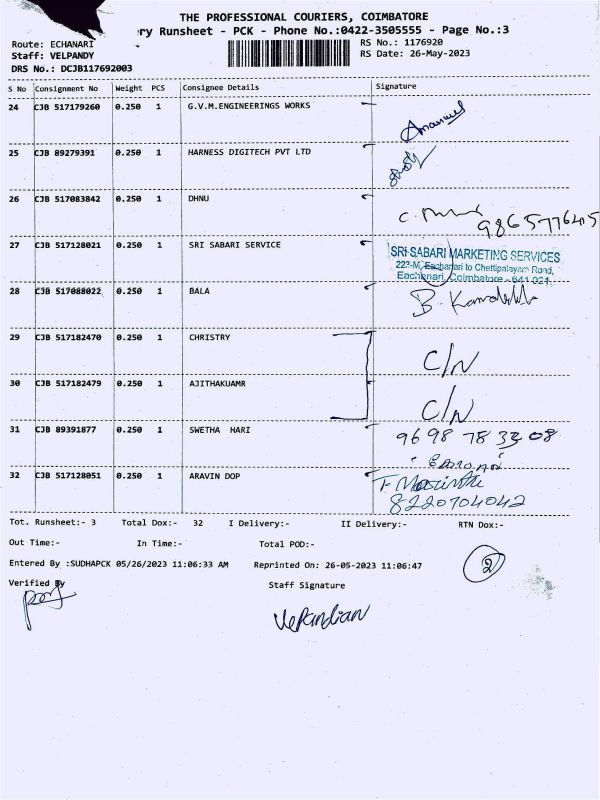 THE PROFESSIONAL COURIERS, COIMBATORE
ry Runsheet - PCK - Phone No.:0422-3505555 - Page No.:3
Route: ECHANARI
RS No.: 1176920
Staff: VELPANDY
RS Date: 26-May-2023
DRS No.: DCJB117692003
S No Consignment No Weight PCS Consignee Details Signature
24 CJB 517179260 0.250 1 G.V.M.ENGINEERINGS WORKS
25 CJB 89279391 0.250 1 HARNESS DIGITECH PVT LTD
26 CJB 517083842 0.250 1 DHNU
9865776415
27 CJB 517128021 0.250 1 SRI SABARI SERVICE
SRI SABARI MARKETING SERVICES
223-M, Eachanari to Chettipalayam Road,
Eachanari, Coimbatore - 641 021.
28 CJB 517088022 0.250 1 BALA
29 CJB 517182470 0.250 1 CHRISTRY
C/N
30 CJB 517182479 0.250 1 AJITHAKUAMR
C/N
31 CJB 89391877 0.250 1 SWETHA HARI
9698 78 33 08
32 CJB 517128051 0.250 1 ARAVIN DOP
8220704042
Tot. Runsheet:- 3 Total Dox:- 32 I Delivery:- II Delivery:- RTN Dox:-
Out Time:- In Time:- Total POD:-
Entered By :SUDHAPCK 05/26/2023 11:06:33 AM Reprinted On: 26-05-2023 11:06:47
2
Verified By Staff Signature
VelPandian